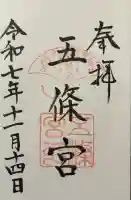 奉拝
五條宮
令和七年十一月十四日